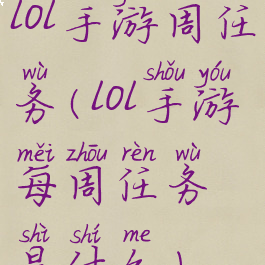 lol手游周任
wù shǒu yóu
务(lol手游
měi zhōu rèn wù
每周任务
shì shí me
是什么)